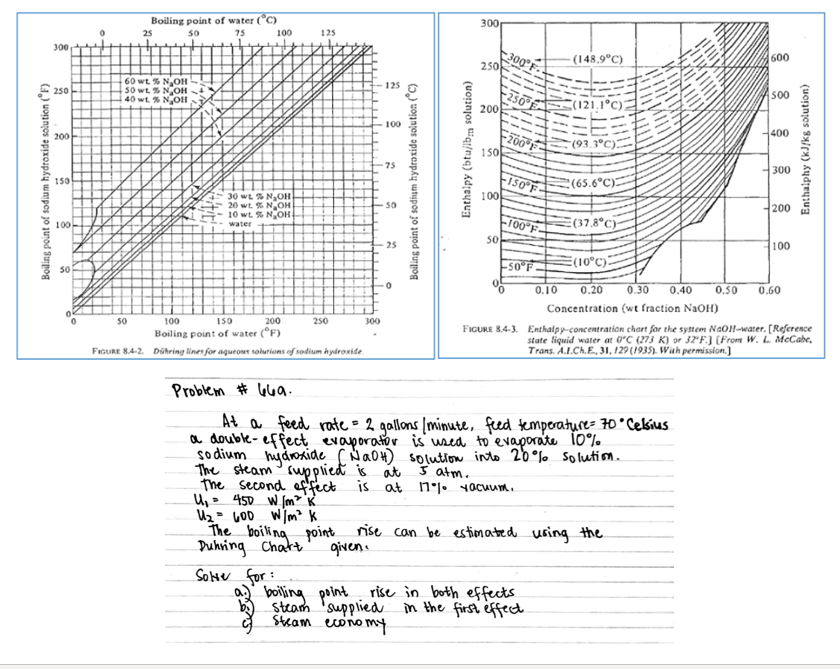 Boiling point of water (°C)
0 25 50 75 100 125
300
250
200
150
100
50
0
Boiling point of sodium hydroxide solution (°F)
60 wt. % NaOH
50 wt. % NaOH
40 wt. % NaOH
30 wt. % NaOH
20 wt. % NaOH
10 wt. % NaOH
water
125
100
75
50
25
0
Boiling point of sodium hydroxide solution (°C)
0 50 100 150 200 250 300
Boiling point of water (°F)
FIGURE 8.4-2. Dühring lines for aqueous solutions of sodium hydroxide
300
250
200
150
100
50
0
Enthalpy (btu/lbm solution)
300°F (148.9°C)
250°F (121.1°C)
200°F (93.3°C)
150°F (65.6°C)
100°F (37.8°C)
50°F (10°C)
600
500
400
300
200
100
Enthalpy (kJ/kg solution)
0 0.10 0.20 0.30 0.40 0.50 0.60
Concentration (wt fraction NaOH)
FIGURE 8.4-3. Enthalpy-concentration chart for the system NaOH-water. [Reference
state liquid water at 0°C (273 K) or 32°F.] [From W. L. McCabe,
Trans. A.I.Ch.E., 31, 129 (1935). With permission.]
Problem # 66a.
At a feed rate = 2 gallons/minute, feed temperature = 70° Celsius
a double-effect evaporator is used to evaporate 10%
sodium hydroxide (NaOH) solution into 20% solution.
The steam supplied is at 5 atm.
The second effect is at 17% vacuum.
U₁ = 450 W/m² K
U₂ = 600 W/m² K
The boiling point rise can be estimated using the
Duhring Chart given.
Solve for:
a.) boiling point rise in both effects
b.) steam supplied in the first effect
c.) steam economy